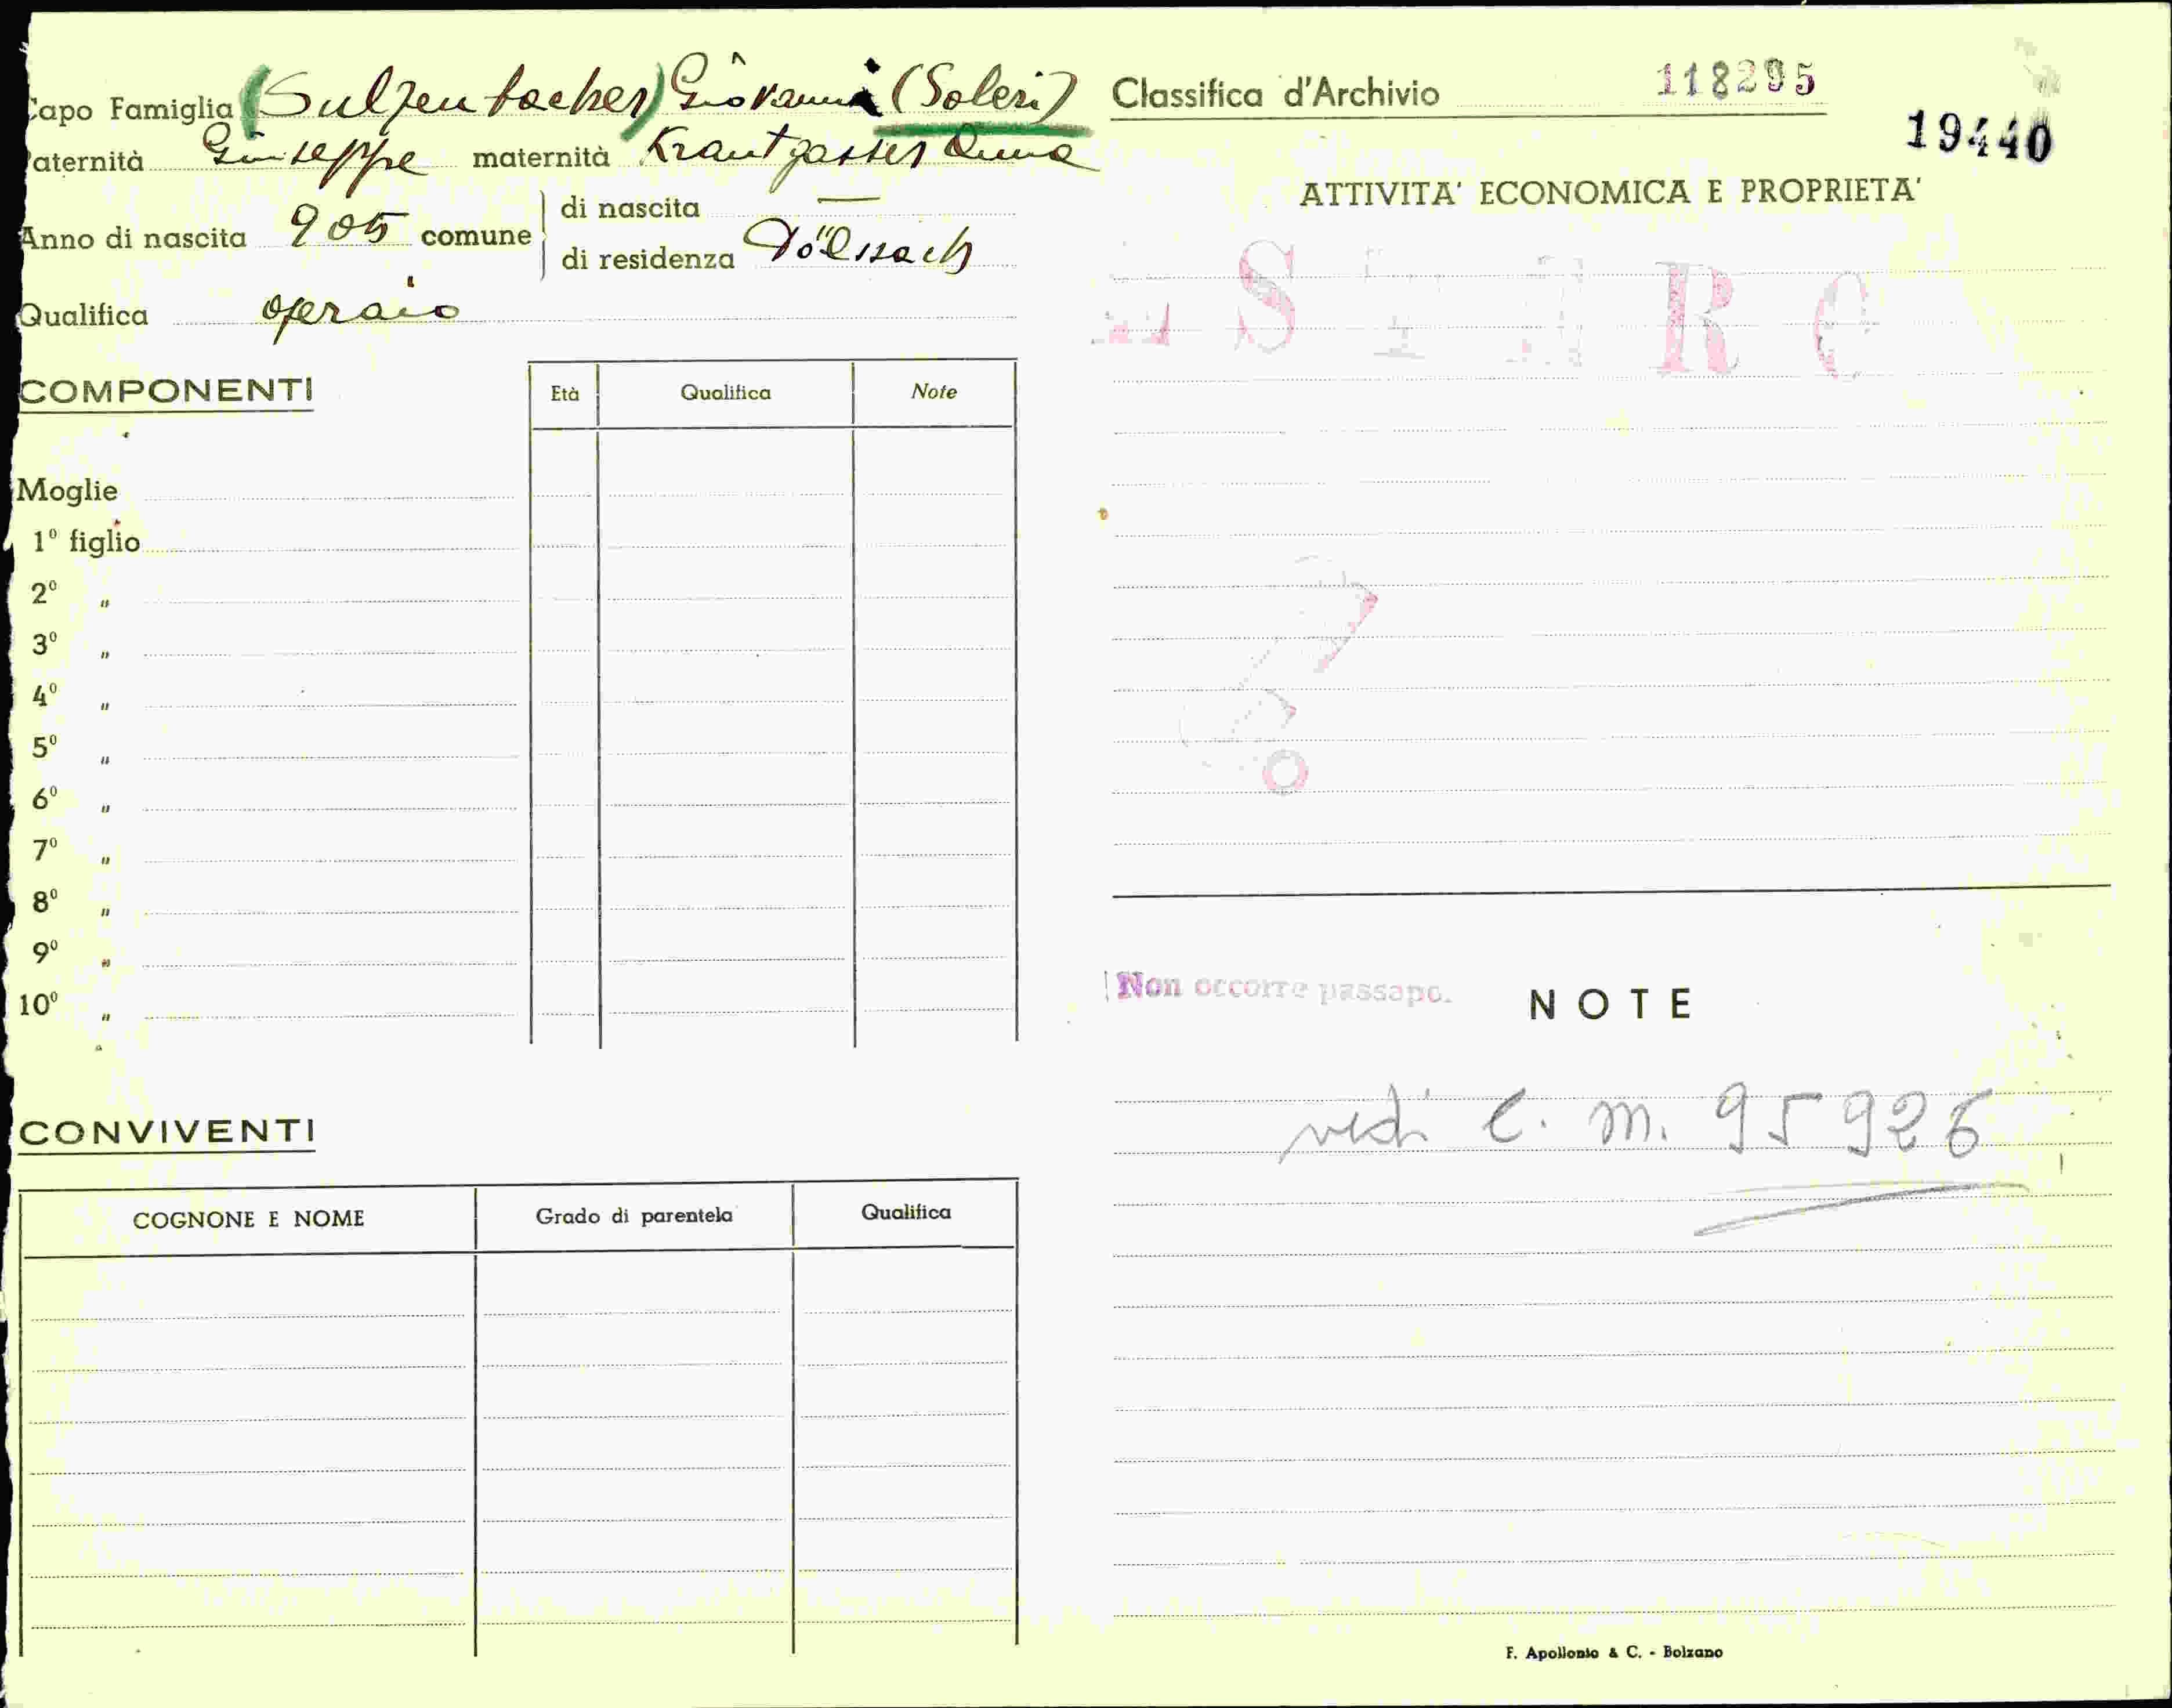 Capo Famiglia (Sulzenbacher) Giovanni (Soleri)
Paternità Giuseppe maternità Krautgasser Anna
Anno di nascita 905 comune di nascita —
di residenza Dölsach
Qualifica operaio
COMPONENTI
Età Qualifica Note
Moglie
1º figlio
2º "
3º "
4º "
5º "
6º "
7º "
8º "
9º "
10º "
CONVIVENTI
COGNONE E NOME Grado di parentela Qualifica
Classifica d'Archivio 118295
19440
ATTIVITA' ECONOMICA E PROPRIETA'
ESTERO
Non occorre passapo.
NOTE
vedi C. M. 95926
F. Apollonio & C. - Bolzano